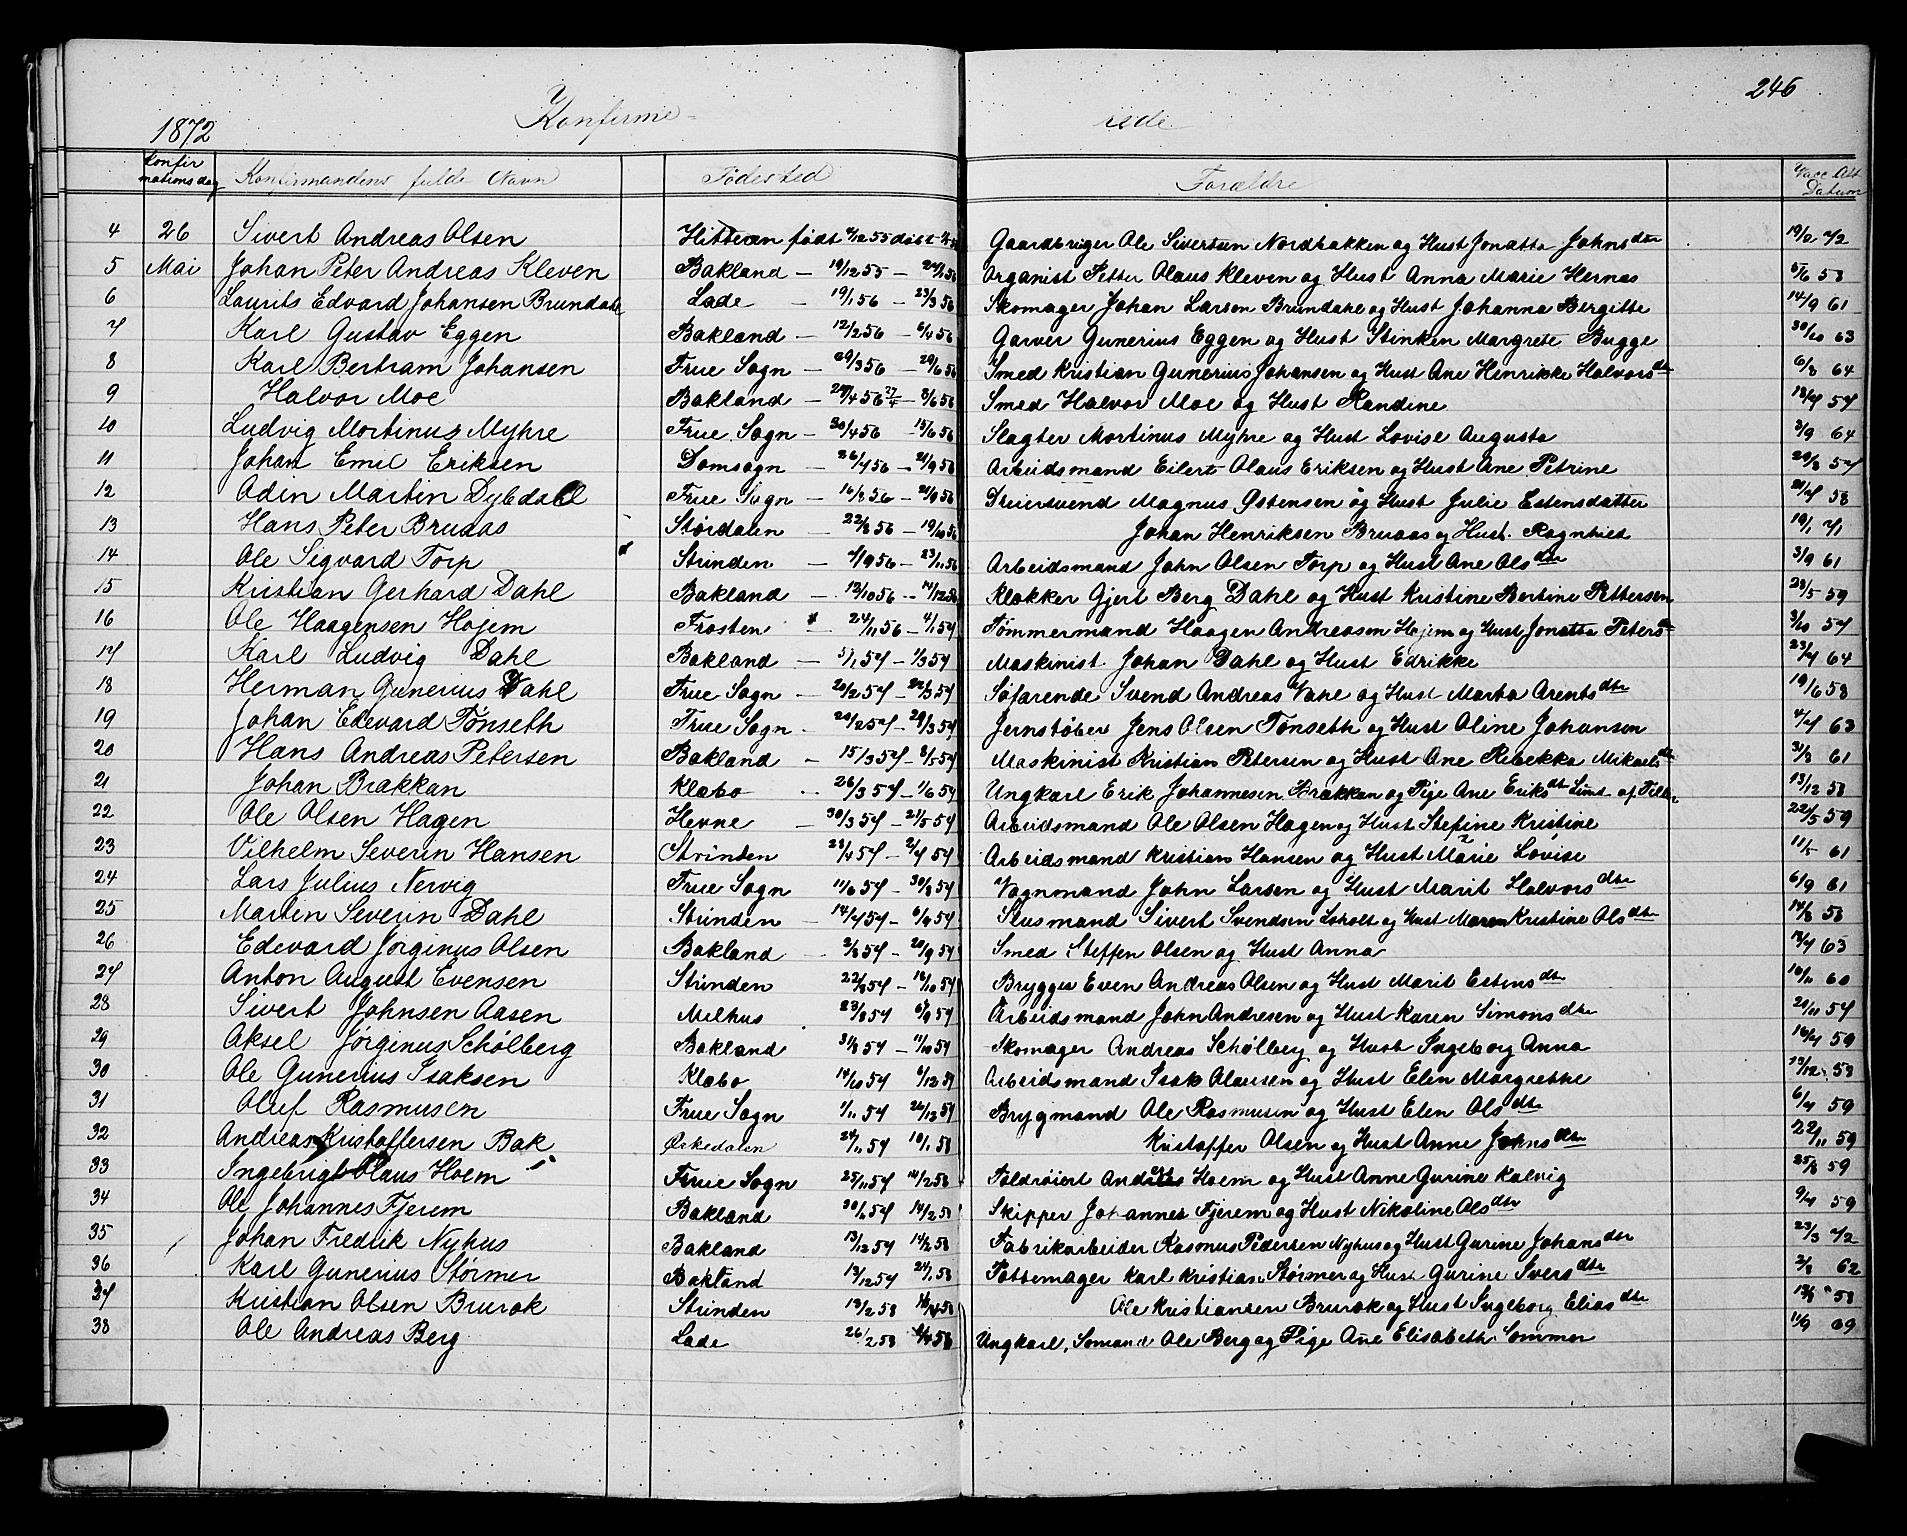 246
1872 Konfirme- rede
Konfirmationsdag Konfirmandens fulde Navn Fødested Forældre Vacc. Att. Datum
4 26 Sivert Andreas Olsen Hitteren født 4/12 55 døbt Gaardbruger Ole Sivertsen Nordbakken og Hust Jonatta Johnsdtr 19/2 72
5 Mai Johan Peter Andreas Kleven Bakland — 19/12 55 — Organist Petter Olaus Kleven og Hust Anna Marie Hernas 5/6 58
6 Laurits Edvard Johansen Brundahl Lade — 19/1 56 — 23/3 56 Skomager Johan Larsen Brundahl og Hust Johanna Bergitte 14/9 61
7 Karl Gustav Eggen Bakland — 12/2 56 — 6/4 56 Garver Gunerius Eggen og Hust Stinken Margrete Bugge 30/10 63
8 Karl Bertram Johansen Frue Sogn — 29/3 56 29/6 56 Smed Kristian Gunerius Johansen og Hust Ane Henrikke Halvorsdtr 6/8 64
9 Halvor Moe Bakland — 27/4 — 8/6 56 Smed Halvor Moe og Hust Randine 13/7 57
10 Ludvig Mortinus Myhre Frue Sogn — 30/4 56 15/6 56 Slagter Mortinus Myhre og Hust Lovise Augusta 3/9 64
11 Johan Emil Eriksen Domsogn — 26/7 56 — 21/9 56 Arbeidsmand Eilert Olaus Eriksen og Hust Ane Petrine 20/8 57
12 Adin Martin Dybdahl Frue Sogn — 16/8 56 — 21/9 56 Dreiersvend Magnus Østensen og Hust Julie Estensdatter 21/7 58
13 Hans Peter Bruaas Størdalen — 22/8 56 — 19/10 56 Johan Henriksen Bruaas og Hust. Ragnhild 19/1 71
14 Ole Sigvard Torp Strinden — 7/9 56 — 23/11 56 Arbeidsmand John Olsen Torp og Hust Ane Olsdtr 3/9 61
15 Kristian Gerhard Dahl Bakland — 12/10 56 — 14/12 56 Klokker Gjert Berg Dahl og Hust Kristine Bertine Pettersen 23/5 59
16 Ole Haagensen Højem Frosten 24/11 56 — 4/1 57 Tømmermand Haagen Andreasen Hojem og Hust Jonatta Petersdtr 3/10 57
17 Karl Ludvig Dahl Bakland — 31/1 57 — 1/3 57 Maskinist Johan Dahl og Hust Edrikke 23/7 64
18 Herman Gunerius Vahl Frue Sogn — 20/2 57 — 22/3 57 Søfarende Svend Andreas Vahl og Hust Marta Arentsdtr 19/6 58
19 Johan Edevard Tønseth Frue Sogn — 20/2 57 — 29/3 57 Jernstøber Jens Olsen Tønseth og Hust Oline Johansen 4/7 63
20 Hans Andreas Petersen Bakland — 15/3 57 — 8/5 57 Maskinist Kristian Petersen og Hust Ane Rebekka Mikaelsdtr 31/8 61
21 Johan Brækkan Klæbo — 26/3 57 — 1/6 57 Ungkarl Erik Johannesen Brækken og Pige Ane Eriksdtr Lund af Tiller 13/12 58
22 Ole Olsen Hagen Hevne — 30/3 57 — 21/5 57 Arbeidsmand Ole Olsen Hagen og Hust Stefine Kristine 22/5 59
23 Vilhelm Severin Hansen Strinden — 23/4 57 — 2/7 57 Arbeidsmand Kristian Hansen og Hust Marie Lovise 11/5 61
24 Lars Julius Nervig Frue Sogn — 11/6 57 — 30/8 57 Vognmand John Larsen og Hust Marit Halvorsdtr 6/9 61
25 Martin Severin Dahl Strinden — 14/7 57 — 6/9 57 Slusmand Sivert Svendsen Loholt og Hust Maren Kristine Olsdtr 14/8 58
26 Edevard Jørginus Olsen Bakland — 2/8 57 — 20/9 57 Smed Steffen Olsen og Hust Anna 13/7 63
27 Anton August Evensen Strinden — 22/8 57 — 18/10 57 Brygger Even Andreas Olsen og Hust Marit Estensdtr 16/11 60
28 Sivert Johnsen Aasen Melhus 23/8 57 6/9 57 Arbeidsmand John Andresen og Hust Karen Simonsdtr 20/11 57
29 Aksel Jørginus Schølberg Bakland 31/8 57 — 11/10 57 Skomager Andreas Schølberg og Hust Ingeborg Anna 16/7 59
30 Ole Gunerius Isaksen Klæbo 14/10 57 6/12 57 Arbeidsmand Isak Olausen og Hust Elen Margrethe 13/12 58
31 Oluf Rasmusen Frue Sogn 1/11 57 26/12 57 Brygmand Ole Rasmusen og Hust Elen Olsdtr 6/7 59
32 Andreas Kristoffersen Bak Ørkedalen 24/11 57 10/1 58 Kristoffer Olsen og Hust Anne Johnsdtr 22/11 59
33 Ingebrigt Olaus Hoem Frue Sogn 25/11 57 14/2 58 Toldrøiert Andreas Hoem og Hust Anne Gurine Kalvig 25/8 59
34 Ole Johannes Fjerem Bakland 14/2 58 Skipper Johannes Fjerem og Hust Nikoline Olsdtr 9/7 59
35 Johan Fredrik Nyhus Bakland 13/12 57 14/2 58 Fabrikarbeider Rasmus Pedersen Nyhus og Hust Gurine Johansdtr 23/3 72
36 Karl Gunerius Størmer Bakland 13/12 57 24/1 58 Pottemager Karl Kristian Størmer og Hust Gurine Iversdtr 2/8 62
37 Kristian Olsen Brurok Strinden 13/2 58 Ole Kristiansen Brurok og Hust Ingeborg Eliasdtr 13/8 58
38 Ole Andreas Berg Lade 26/2 58 Ungkarl, Sømand Ole Berg og Pige Ane Elisabeth Sommer 11/9 69